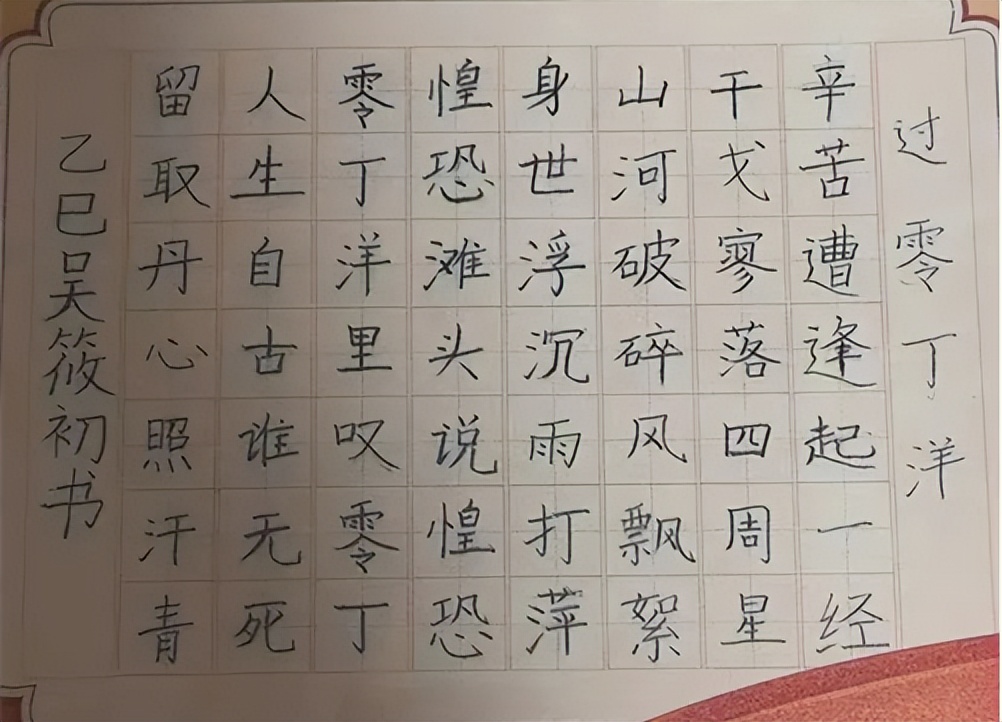 过零丁洋
辛苦遭逢起一经
干戈寥落四周星
山河破碎风飘絮
身世浮沉雨打萍
惶恐滩头说惶恐
零丁洋里叹零丁
人生自古谁无死
留取丹心照汗青
乙巳吴筱初书